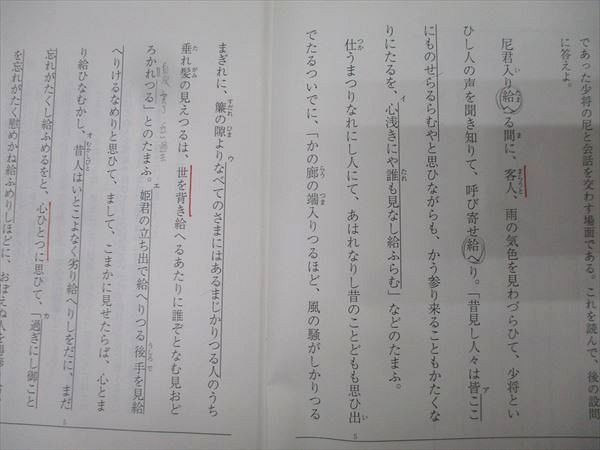 であった少将の尼と会話を交わす場面である。これを読んで、後の設問
に答えよ。
尼君入り給へる間に、客人、雨の気色を見わづらひて、少将とい
ひし人の声を聞き知りて、呼び寄せ給へり。「昔見し人々は皆ここ
にものせらるらむやと思ひながらも、かう参り来ることもかたくな
りにたるを、心浅きにや誰も見なし給ふらむ」などのたまふ。
仕うまつりなれにし人にて、あはれなりし昔のことどもも思ひ出
でたるついでに、「かの廊の端入りつるほど、風の騒がしかりつる
まぎれに、簾の隙よりなべてのさまにはあるまじかりつる人のうち
垂れ髪の見えつるは、世を背き給へるあたりに誰ぞとなむ見おど
ろかれつる」とのたまふ。姫君の立ち出で給へりつる後手を見給
へりけるなめりと思ひて、まして、こまかに見せたらば、心とま
り給ひなむかし、昔人はいとこよなく劣り給へりしをだに、まだ
忘れがたくし給ふめるをと、心ひとつに思ひて、「過ぎにし御こと
を忘れがたく慰めかね給ふめりしほどに、おぼえぬ人を得